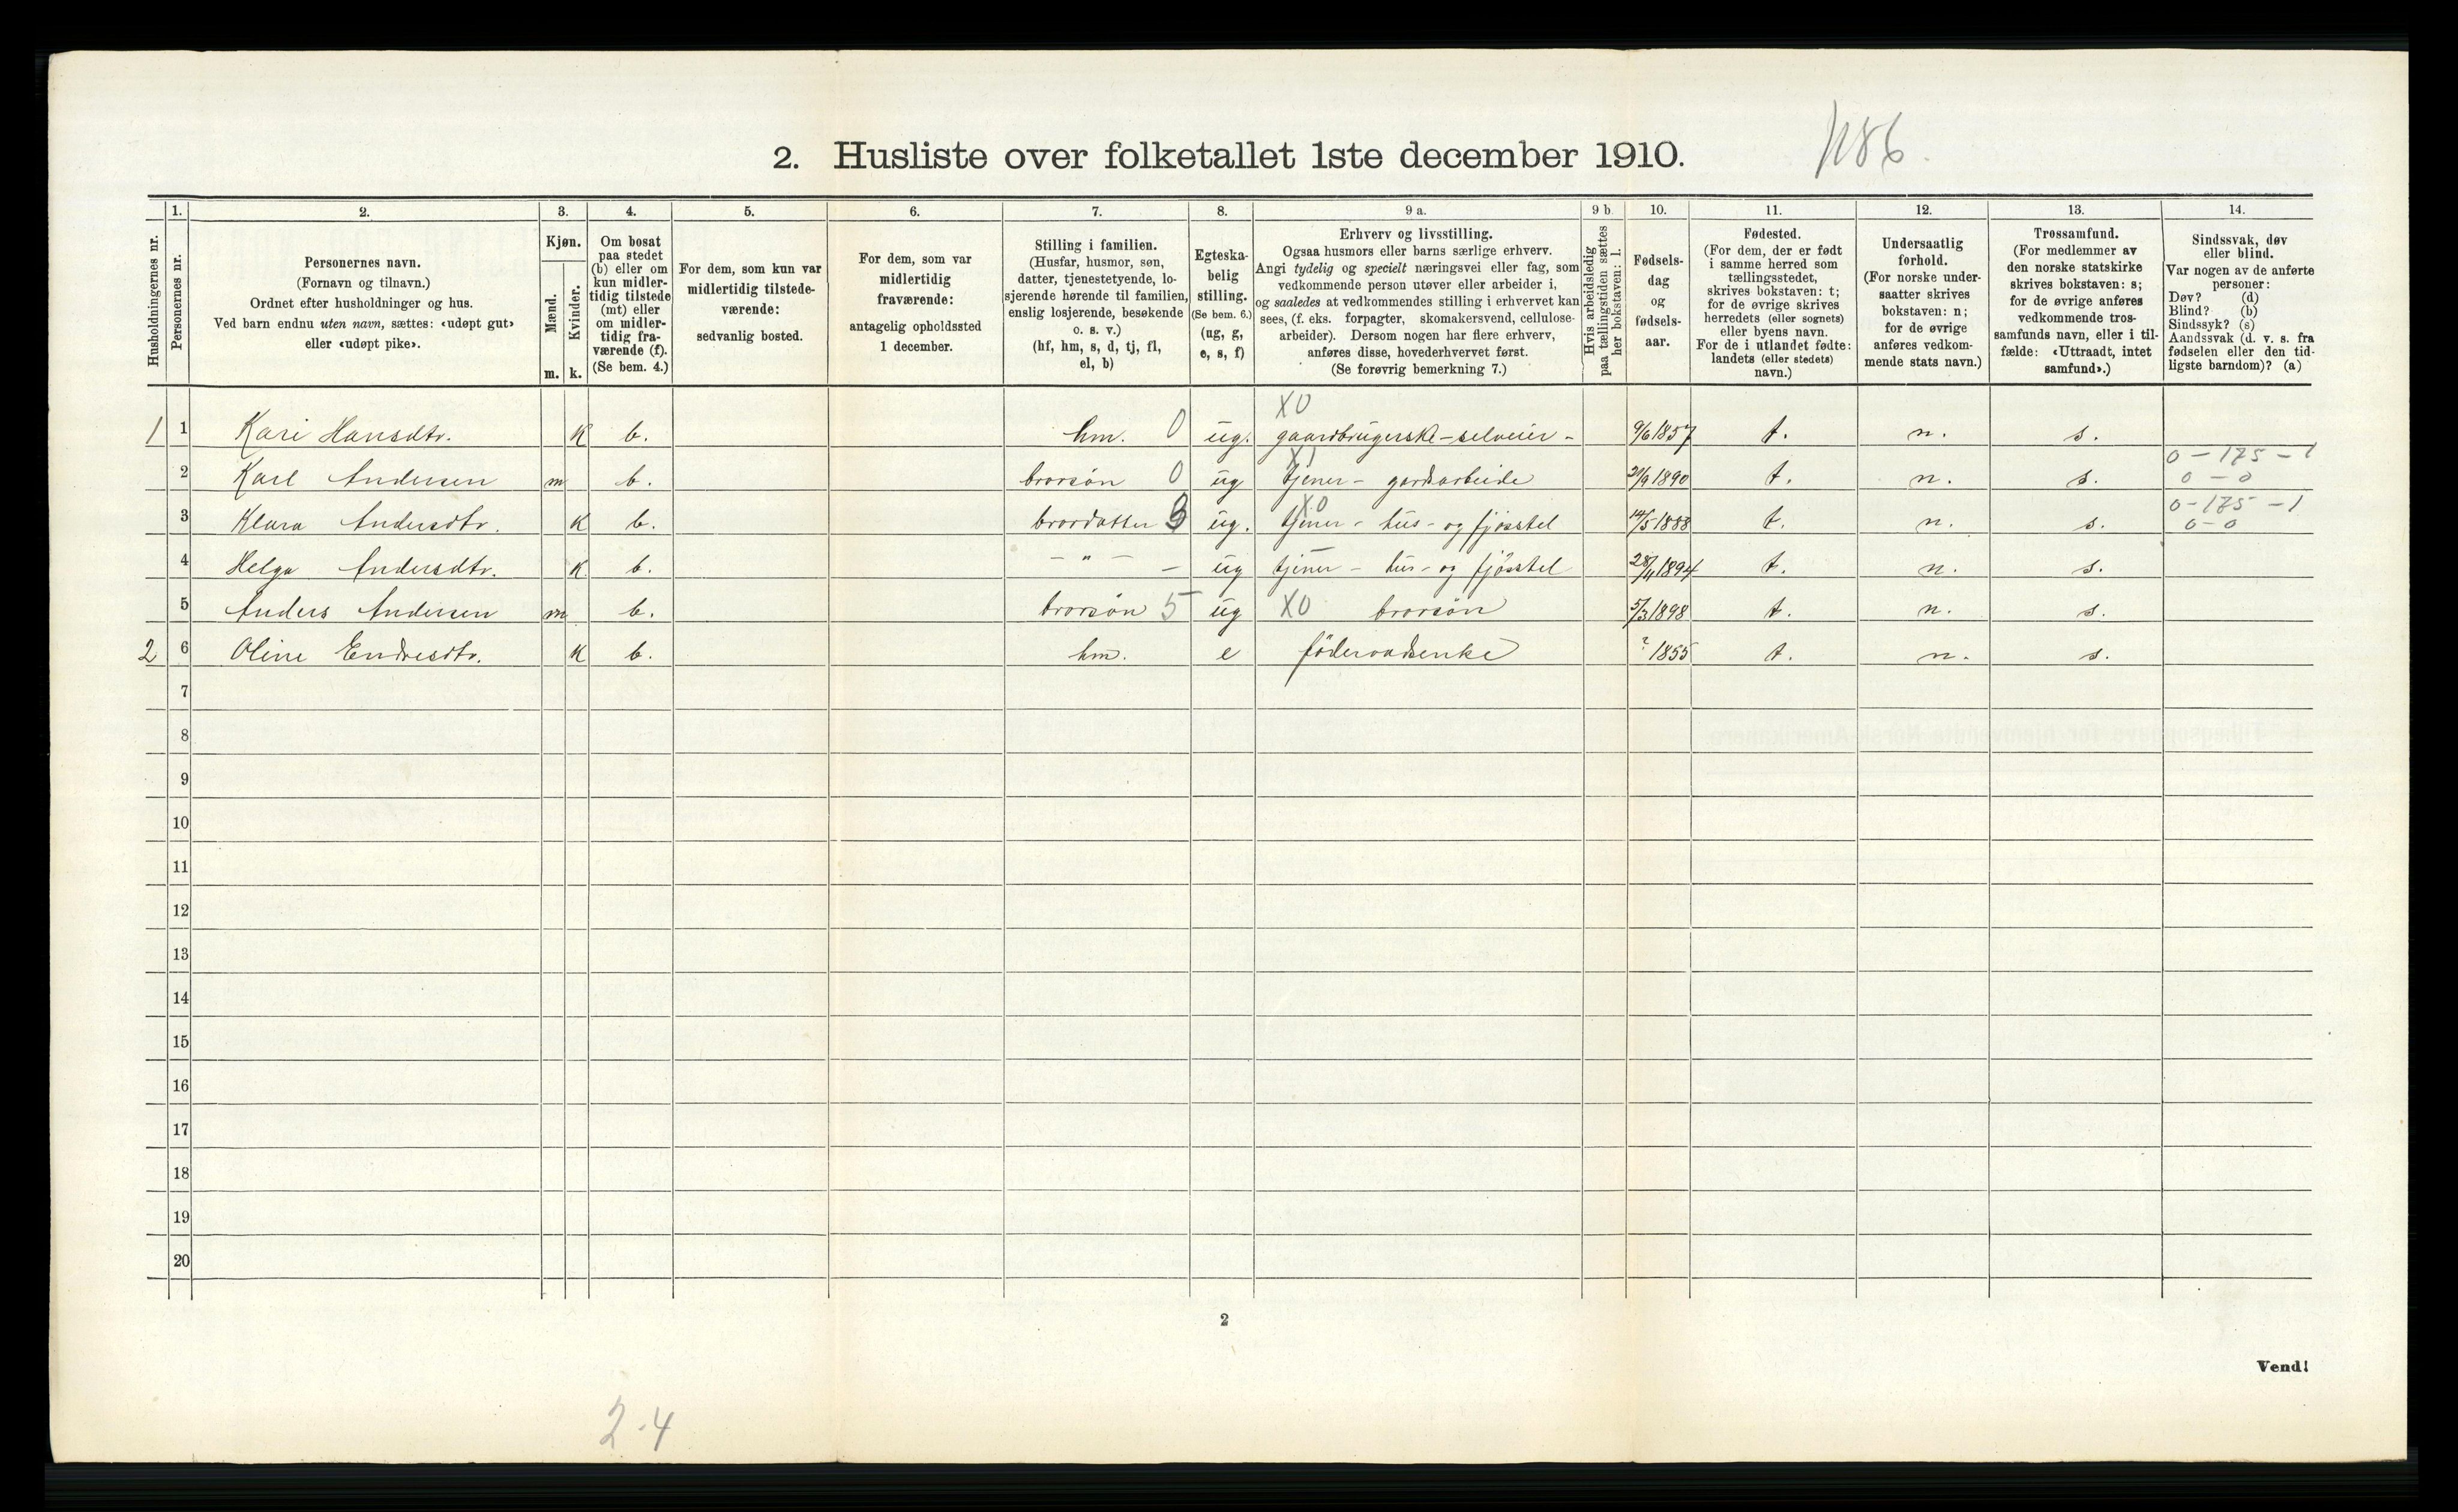 2. Husliste over folketallet 1ste december 1910.
1. 2. 3. 4. 5. 6. 7. 8. 9 a. 9 b 10. 11. 12. 13. 14.
Husholdningernes nr.
Personernes nr.
Personernes navn.
(Fornavn og tilnavn.)
Ordnet efter husholdninger og hus.
Ved barn endnu uten navn, sættes: «udøpt gut»
eller «udøpt pike».
Kjøn.
Mænd.
Kvinder.
m. k.
Om bosat
paa stedet
(b) eller om
kun midler-
tidig tilstede
(mt) eller
om midler-
tidig fra-
værende (f).
(Se bem. 4.)
For dem, som kun var
midlertidig tilstede-
værende:
sedvanlig bosted.
For dem, som var
midlertidig
fraværende:
antagelig opholdssted
1 december.
Stilling i familien.
(Husfar, husmor, søn,
datter, tjenestetyende, lo-
sjerende hørende til familien,
enslig losjerende, besøkende
o. s. v.)
(hf, hm, s, d, tj, fl,
el, b)
Egteska-
belig
stilling.
(Se bem. 6.)
(ug, g,
e, s, f)
Erhverv og livsstilling.
Ogsaa husmors eller barns særlige erhverv.
Angi tydelig og specielt næringsvei eller fag, som
vedkommende person utøver eller arbeider i,
og saaledes at vedkommendes stilling i erhvervet kan
sees, (f. eks. forpagter, skomakersvend, cellulose-
arbeider). Dersom nogen har flere erhverv,
anføres disse, hovederhvervet først.
(Se forøvrig bemerkning 7.)
Hvis arbeidsledig
paa tællingstiden sættes
her bokstaven: l.
Fødsels-
dag
og
fødsels-
aar.
Fødested.
(For dem, der er født
i samme herred som
tællingsstedet,
skrives bokstaven: t;
for de øvrige skrives
herredets (eller sognets)
eller byens navn.
For de i utlandet fødte:
landets (eller stedets)
navn.)
Undersaatlig
forhold.
(For norske under-
saatter skrives
bokstaven: n;
for de øvrige
anføres vedkom-
mende stats navn.)
Trossamfund.
(For medlemmer av
den norske statskirke
skrives bokstaven: s;
for de øvrige anføres
vedkommende tros-
samfunds navn, eller i til-
fælde: «Uttraadt, intet
samfund».)
Sindssvak, døv
eller blind.
Var nogen av de anførte
personer:
Døv? (d)
Blind? (b)
Sindssyk? (s)
Aandssvak (d. v. s. fra
fødselen eller den tid-
ligste barndom)? (a)
X0
1 1 Kari Hansdtr. K b. hm. 0 ug. gaardbrugerske - selveier - 9/6 1857 t. n. s.
0 - 175 - 1
2 Karl Andersen m b. brorsön 0 ug tjener - gardsarbeide 1890 t. n. s. 0 - 0
X0 0 - 175 - 1
3 Klara Andersdtr. K b. brordatter 3 ug. tjener - hus - og fjösstel 14/5 1888 t. n. s. 0 - 0
4 Helga Andersdtr. K b. - " - - ug tjener - hus - og fjösstel 28/11 1894 t. n. s.
5 Anders Andersen m b. brorsön 5 ug X0 brorsön 5/3 1898 t. n. s.
2 6 Oline Endresdtr. K b. hm. e föderaadsenke ? 1855 t. n. s.
7
8
9
10
11
12
13
14
15
16
17
18
19
20
2
Vend!
2 - 4